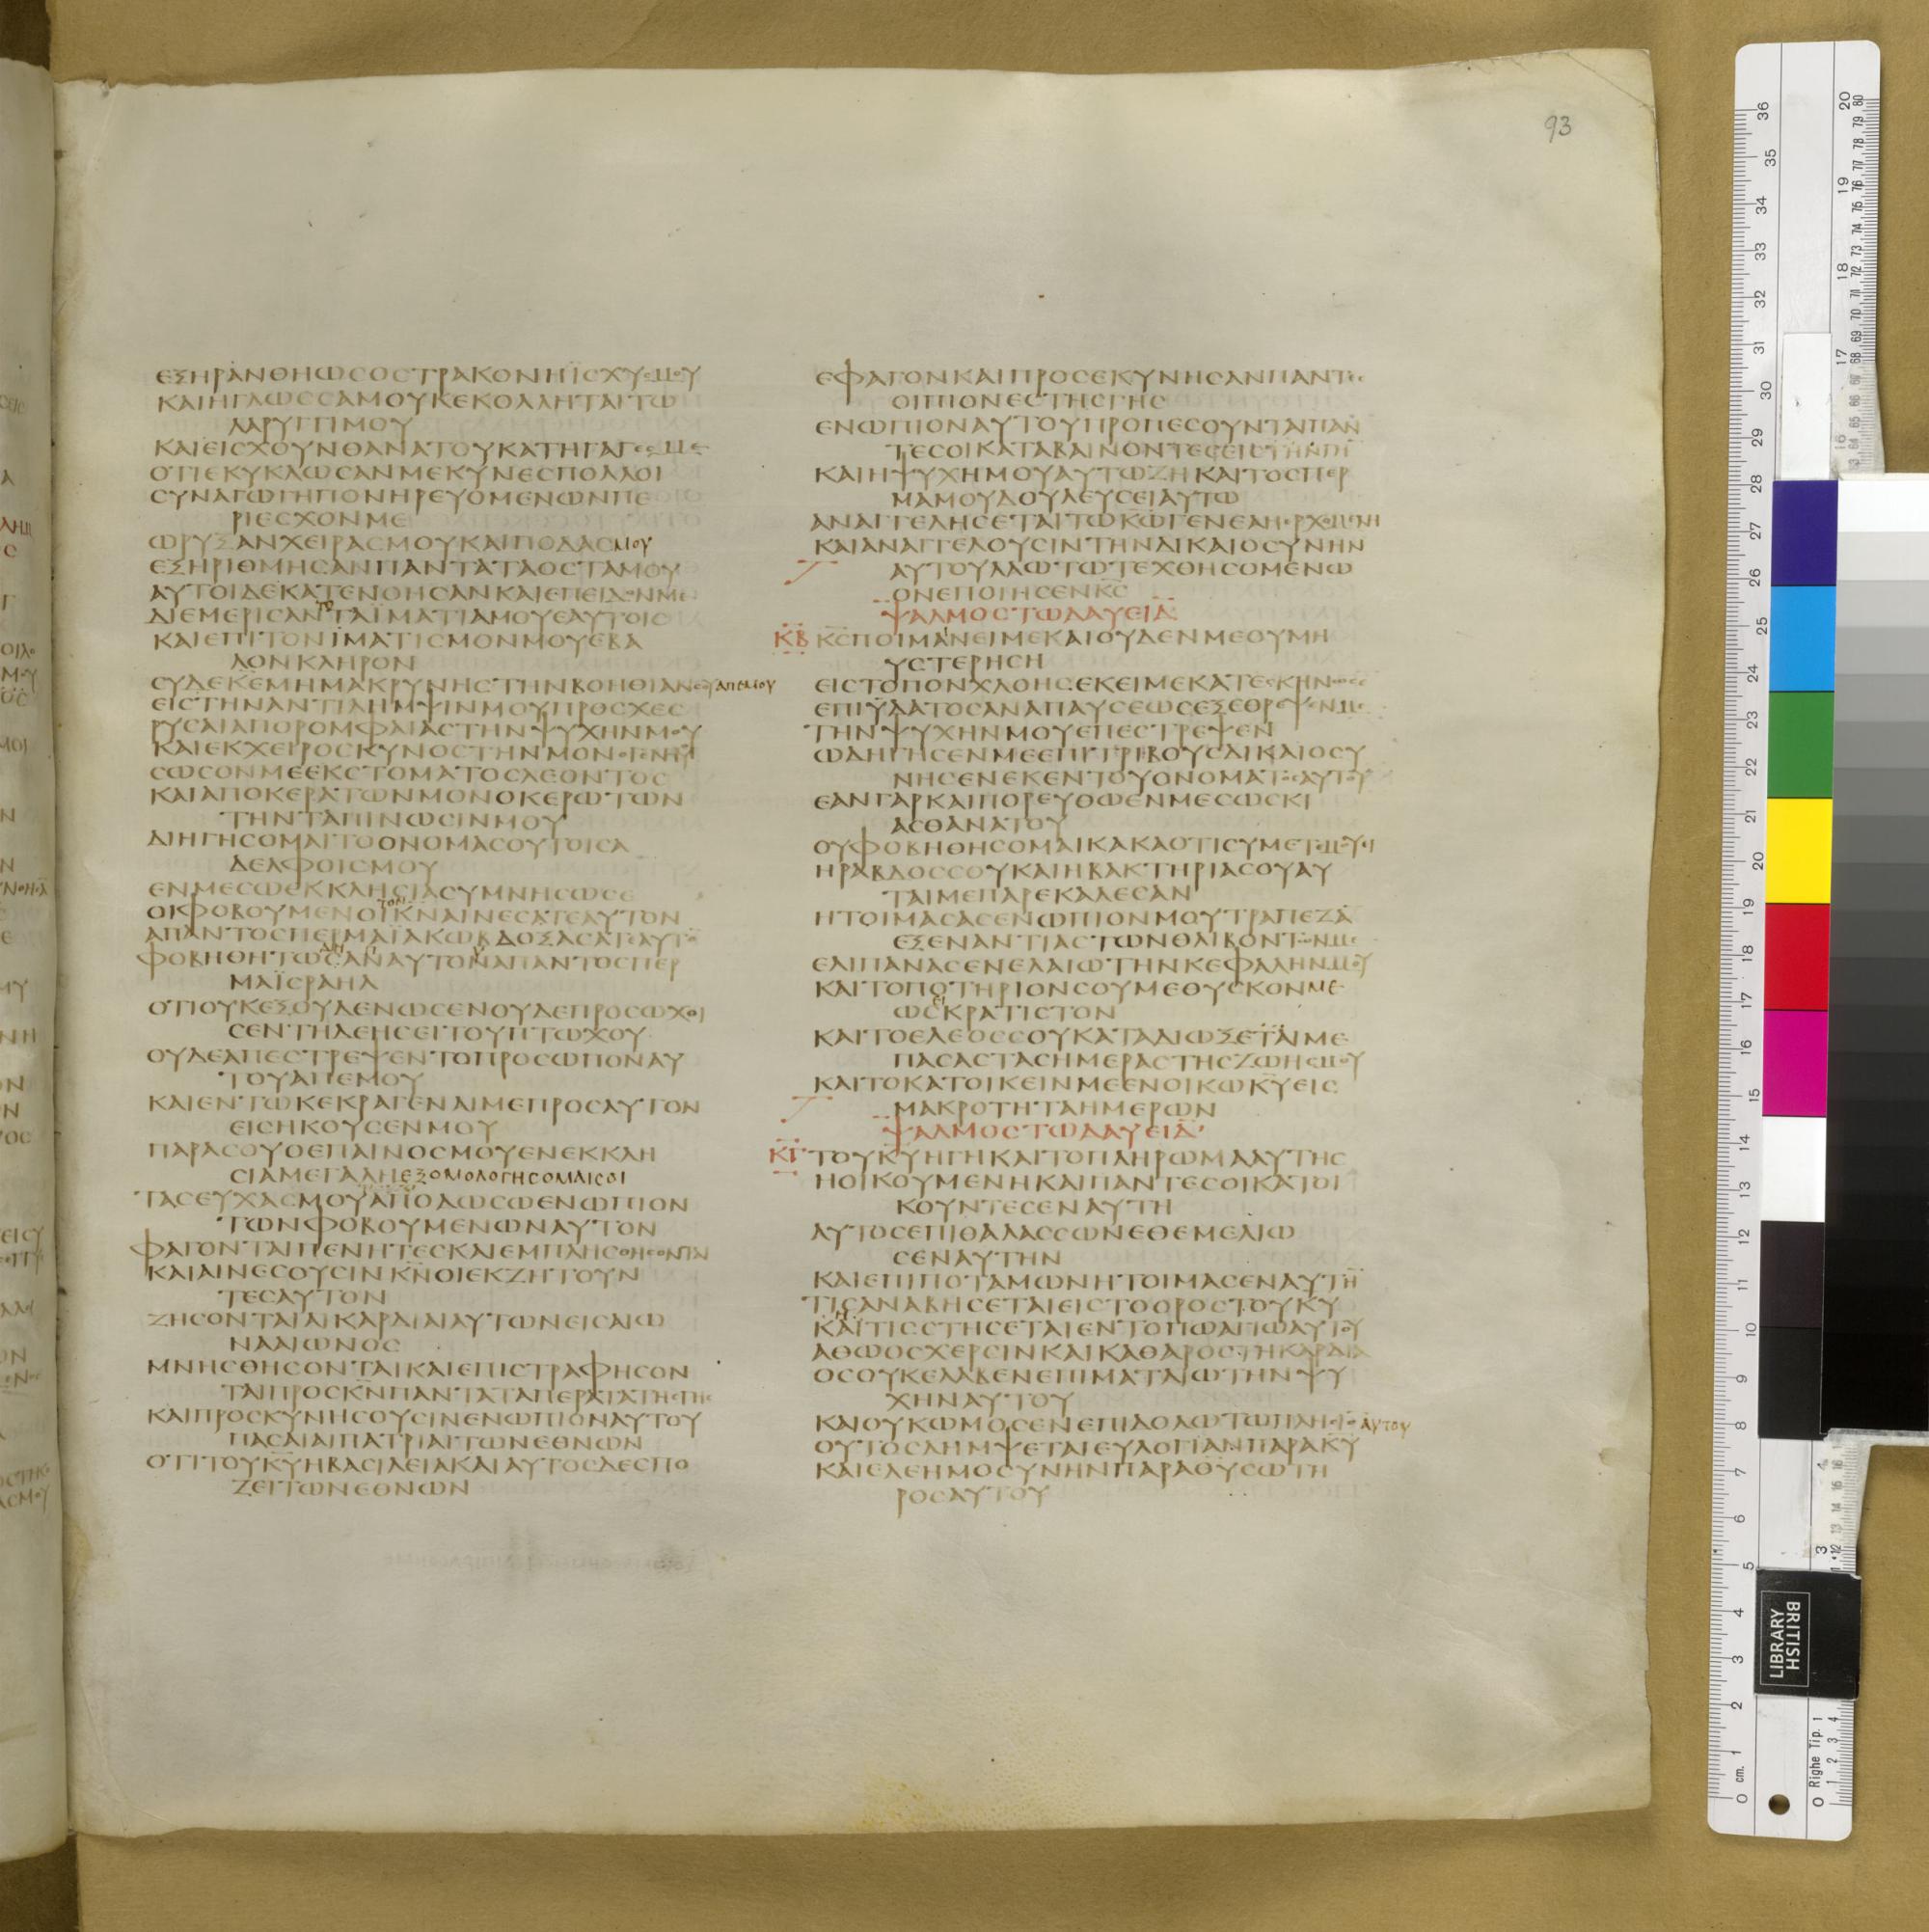 93
ΕΞΗΡΑΝΘΗΩΣΟΣΤΡΑΚΟΝΗΪΣΧΥΣΜΟΥ
ΚΑΙΗΓΛΩΣΣΑΜΟΥΚΕΚΟΛΛΗΤΑΙΤΩ
ΛΑΡΥΓΓΙΜΟΥ
ΚΑΙΕΙΣΧΟΥΝΘΑΝΑΤΟΥΚΑΤΗΓΑΓΕΣΜΕ
ΟΤΙΕΚΥΚΛΩΣΑΝΜΕΚΥΝΕΣΠΟΛΛΟΙ
ΣΥΝΑΓΩΓΗΠΟΝΗΡΕΥΟΜΕΝΩΝΠΕ
ΡΙΕΣΧΟΝΜΕ
ΩΡΥΞΑΝΧΕΙΡΑΣΜΟΥΚΑΙΠΟΔΑΣΜΟΥ
ΕΞΗΡΙΘΜΗΣΑΝΠΑΝΤΑΤΑΟΣΤΑΜΟΥ
ΑΥΤΟΙΔΕΚΑΤΕΝΟΗΣΑΝΚΑΙΕΠΕΙΔΟΝΜΕ
ΔΙΕΜΕΡΙΣΑΝΤΟΤΑΪΜΑΤΙΑΜΟΥΕΑΥΤΟΙΣ
ΚΑΙΕΠΙΤΟΝΪΜΑΤΙΣΜΟΝΜΟΥΕΒΑ
ΛΟΝΚΛΗΡΟΝ
ΣΥΔΕΚΕΜΗΜΑΚΡΥΝΗΣΤΗΝΒΟΗΘΙΑΝΣΟΥΑΠΕΜΟΥ
ΕΙΣΤΗΝΑΝΤΙΛΗΜΨΙΝΜΟΥΠΡΟΣΧΕΣ
ΡΥΣΑΙΑΠΟΡΟΜΦΑΙΑΣΤΗΝΨΥΧΗΝΜΟΥ
ΚΑΙΕΚΧΕΙΡΟΣΚΥΝΟΣΤΗΝΜΟΝΟΓΕΝΗ
ΣΩΣΟΝΜΕΕΚΣΤΟΜΑΤΟΣΛΕΟΝΤΟΣ
ΚΑΙΑΠΟΚΕΡΑΤΩΝΜΟΝΟΚΕΡΩΤΩΝ
ΤΗΝΤΑΠΙΝΩΣΙΝΜΟΥ
ΔΙΗΓΗΣΟΜΑΙΤΟΟΝΟΜΑΣΟΥΤΟΙΣΑ
ΔΕΛΦΟΙΣΜΟΥ
ΕΝΜΕΣΩΕΚΚΛΗΣΙΑΣΥΜΝΗΣΩΣΕ
ΟΙΦΟΒΟΥΜΕΝΟΙΤΟΝΚΝΑΙΝΕΣΑΤΕΑΥΤΟΝ
ΑΠΑΝΤΟΣΠΕΡΜΑΪΑΚΩΒΔΟΞΑΣΑΤΑΥΤΟ
ΦΟΒΗΘΗΤΩΣΑΝΑΥΤΟΝΑΠΑΝΤΟΣΠΕΡ
ΜΑΪΣΡΑΗΛ
ΟΤΙΟΥΚΕΞΟΥΔΕΝΩΣΕΝΟΥΔΕΠΡΟΣΩΧΘΙ
ΣΕΝΤΗΔΕΗΣΕΙΤΟΥΠΤΩΧΟΥ
ΟΥΔΕΑΠΕΣΤΡΕΨΕΝΤΟΠΡΟΣΩΠΟΝΑΥ
ΤΟΥΑΠΕΜΟΥ
ΚΑΙΕΝΤΩΚΕΚΡΑΓΕΝΑΙΜΕΠΡΟΣΑΥΤΟΝ
ΕΙΣΗΚΟΥΣΕΝΜΟΥ
ΠΑΡΑΣΟΥΟΕΠΑΙΝΟΣΜΟΥΕΝΕΚΚΛΗ
ΣΙΑΜΕΓΑΛΗΕΞΟΜΟΛΟΓΗΣΟΜΑΙΣΟΙ
ΤΑΣΕΥΧΑΣΜΟΥΑΠΟΔΩΣΩΕΝΩΠΙΟΝ
ΤΩΝΦΟΒΟΥΜΕΝΩΝΑΥΤΟΝ
ΦΑΓΟΝΤΑΙΠΕΝΗΤΕΣΚΑΙΕΜΠΛΗΣΘΗΣΟΝΤΑΙ
ΚΑΙΑΙΝΕΣΟΥΣΙΝΚΝΟΙΕΚΖΗΤΟΥΝ
ΤΕΣΑΥΤΟΝ
ΖΗΣΟΝΤΑΙΑΙΚΑΡΔΙΑΙΑΥΤΩΝΕΙΣΑΙΩ
ΝΑΑΙΩΝΟΣ
ΜΝΗΣΘΗΣΟΝΤΑΙΚΑΙΕΠΙΣΤΡΑΦΗΣΟΝ
ΤΑΙΠΡΟΣΚΝΠΑΝΤΑΤΑΠΕΡΑΤΑΤΗΣΓΗΣ
ΚΑΙΠΡΟΣΚΥΝΗΣΟΥΣΙΝΕΝΩΠΙΟΝΑΥΤΟΥ
ΠΑΣΑΙΑΙΠΑΤΡΙΑΙΤΩΝΕΘΝΩΝ
ΟΤΙΤΟΥΚΥΗΒΑΣΙΛΕΙΑΚΑΙΑΥΤΟΣΔΕΣΠΟ
ΖΕΙΤΩΝΕΘΝΩΝ
ΕΦΑΓΟΝΚΑΙΠΡΟΣΕΚΥΝΗΣΑΝΠΑΝΤΕΣ
ΟΙΠΙΟΝΕΣΤΗΣΓΗΣ
ΕΝΩΠΙΟΝΑΥΤΟΥΠΡΟΠΕΣΟΥΝΤΑΙΠΑΝ
ΤΕΣΟΙΚΑΤΑΒΑΙΝΟΝΤΕΣΕΙΣΤΗΝΓΗ
ΚΑΙΗΨΥΧΗΜΟΥΑΥΤΩΖΗΚΑΙΤΟΣΠΕΡ
ΜΑΜΟΥΔΟΥΛΕΥΣΕΙΑΥΤΩ
ΑΝΑΓΓΕΛΗΣΕΤΑΙΤΩΚΩΓΕΝΕΑΗΕΡΧΟΜΕΝΗ
ΚΑΙΑΝΑΓΓΕΛΟΥΣΙΝΤΗΝΔΙΚΑΙΟΣΥΝΗΝ
ΑΥΤΟΥΛΑΩΤΩΤΕΧΘΗΣΟΜΕΝΩ
ΟΝΕΠΟΙΗΣΕΝΚΣ
ΨΑΛΜΟΣΤΩΔΑΥΕΙΔ
ΚΒ ΚΣΠΟΙΜΑΝΕΙΜΕΚΑΙΟΥΔΕΝΜΕΟΥΜΗ
ΥΣΤΕΡΗΣΗ
ΕΙΣΤΟΠΟΝΧΛΟΗΣΕΚΕΙΜΕΚΑΤΕΣΚΗΝΩΣΕ
ΕΠΙΫΔΑΤΟΣΑΝΑΠΑΥΣΕΩΣΕΞΕΘΡΕΨΕΝΜΕ
ΤΗΝΨΥΧΗΝΜΟΥΕΠΕΣΤΡΕΨΕΝ
ΩΔΗΓΗΣΕΝΜΕΕΠΙΤΡΙΒΟΥΣΔΙΚΑΙΟΣΥ
ΝΗΣΕΝΕΚΕΝΤΟΥΟΝΟΜΑΤΟΣΑΥΤΟΥ
ΕΑΝΓΑΡΚΑΙΠΟΡΕΥΘΩΕΝΜΕΣΩΣΚΙ
ΑΣΘΑΝΑΤΟΥ
ΟΥΦΟΒΗΘΗΣΟΜΑΙΚΑΚΑΟΤΙΣΥΜΕΤΕΜΟΥΕΙ
ΗΡΑΒΔΟΣΣΟΥΚΑΙΗΒΑΚΤΗΡΙΑΣΟΥΑΥ
ΤΑΙΜΕΠΑΡΕΚΑΛΕΣΑΝ
ΗΤΟΙΜΑΣΑΣΕΝΩΠΙΟΝΜΟΥΤΡΑΠΕΖΑ
ΕΞΕΝΑΝΤΙΑΣΤΩΝΘΛΙΒΟΝΤΩΝΜΕ
ΕΛΙΠΑΝΑΣΕΝΕΛΑΙΩΤΗΝΚΕΦΑΛΗΝΜΟΥ
ΚΑΙΤΟΠΟΤΗΡΙΟΝΣΟΥΜΕΘΥΣΚΟΝΜΕ
ΩΣΕΙΚΡΑΤΙΣΤΟΝ
ΚΑΙΤΟΕΛΕΟΣΣΟΥΚΑΤΑΔΙΩΞΕΤΑΙΜΕ
ΠΑΣΑΣΤΑΣΗΜΕΡΑΣΤΗΣΖΩΗΣΜΟΥ
ΚΑΙΤΟΚΑΤΟΙΚΕΙΝΜΕΕΝΟΙΚΩΚΥΕΙΣ
ΜΑΚΡΟΤΗΤΑΗΜΕΡΩΝ
ΨΑΛΜΟΣΤΩΔΑΥΕΙΔ
ΚΓ ΤΟΥΚΥΗΓΗΚΑΙΤΟΠΛΗΡΩΜΑΑΥΤΗΣ
ΗΟΙΚΟΥΜΕΝΗΚΑΙΠΑΝΤΕΣΟΙΚΑΤΟΙ
ΚΟΥΝΤΕΣΕΝΑΥΤΗ
ΑΥΤΟΣΕΠΙΘΑΛΑΣΣΩΝΕΘΕΜΕΛΙΩ
ΣΕΝΑΥΤΗΝ
ΚΑΙΕΠΙΠΟΤΑΜΩΝΗΤΟΙΜΑΣΕΝΑΥΤΗ
ΤΙΣΑΝΑΒΗΣΕΤΑΙΕΙΣΤΟΟΡΟΣΤΟΥΚΥ
ΚΑΙΤΙΣΣΤΗΣΕΤΑΙΕΝΤΟΠΩΑΓΙΩΑΥΤΟΥ
ΑΘΩΟΣΧΕΡΣΙΝΚΑΙΚΑΘΑΡΟΣΤΗΚΑΡΔΙΑ
ΟΣΟΥΚΕΛΑΒΕΝΕΠΙΜΑΤΑΙΩΤΗΝΨΥ
ΧΗΝΑΥΤΟΥ
ΚΑΙΟΥΚΩΜΟΣΕΝΕΠΙΔΟΛΩΤΩΠΛΗΣΙΟΑΥΤΟΥ
ΟΥΤΟΣΛΗΜΨΕΤΑΙΕΥΛΟΓΙΑΝΠΑΡΑΚΥ
ΚΑΙΕΛΕΗΜΟΣΥΝΗΝΠΑΡΑΘΥΣΩΤΗ
ΡΟΣΑΥΤΟΥ
BRITISH
LIBRARY
0 cm. 1 2 3 4 5 6 7 8 9 10 11 12 13 14 15 16 17 18 19 20 21 22 23 24 25 26 27 28 29 30 31 32 33 34 35 36
0 Righe Tip. 1